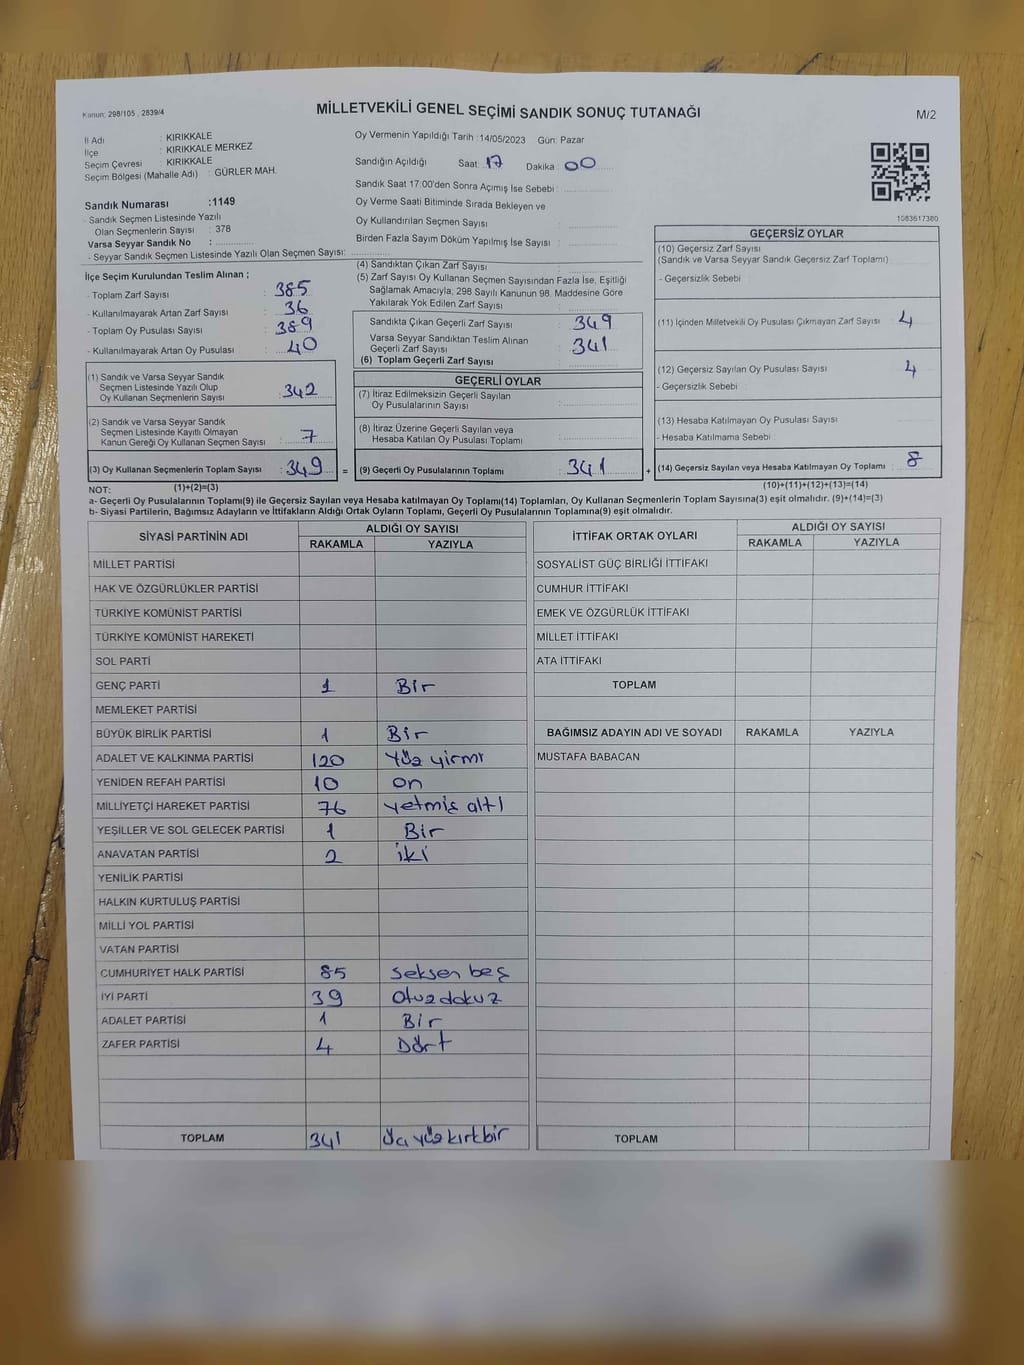 Kanun; 298/105 , 2839/4
MİLLETVEKİLİ GENEL SEÇİMİ SANDIK SONUÇ TUTANAĞI
M/2
İl Adı : KIRIKKALE
İlçe : KIRIKKALE MERKEZ
Seçim Çevresi : KIRIKKALE
Seçim Bölgesi (Mahalle Adı) : GÜRLER MAH.
Sandık Numarası :1149
- Sandık Seçmen Listesinde Yazılı
Olan Seçmenlerin Sayısı : 378
Varsa Seyyar Sandık No :
- Seyyar Sandık Seçmen Listesinde Yazılı Olan Seçmen Sayısı:
Oy Vermenin Yapıldığı Tarih :14/05/2023 Gün: Pazar
Sandığın Açıldığı Saat : 17 Dakika : 00
Sandık Saat 17:00'den Sonra Açımış İse Sebebi :
Oy Verme Saati Bitiminde Sırada Bekleyen ve
Oy Kullandırılan Seçmen Sayısı :
Birden Fazla Sayım Döküm Yapılmış İse Sayısı :
1083617380
İlçe Seçim Kurulundan Teslim Alınan ;
- Toplam Zarf Sayısı : 385
- Kullanılmayarak Artan Zarf Sayısı : 36
- Toplam Oy Pusulası Sayısı : 389
- Kullanılmayarak Artan Oy Pusulası : 40
(1) Sandık ve Varsa Seyyar Sandık
Seçmen Listesinde Yazılı Olup
Oy Kullanan Seçmenlerin Sayısı : 342
(2) Sandık ve Varsa Seyyar Sandık
Seçmen Listesinde Kayıtlı Olmayan
Kanun Gereği Oy Kullanan Seçmen Sayısı : 7
(3) Oy Kullanan Seçmenlerin Toplam Sayısı : 349 =
(1)+(2)=(3)
(4) Sandıktan Çıkan Zarf Sayısı :
(5) Zarf Sayısı Oy Kullanan Seçmen Sayısından Fazla İse, Eşitliği
Sağlamak Amacıyla, 298 Sayılı Kanunun 98. Maddesine Göre
Yakılarak Yok Edilen Zarf Sayısı :
Sandıkta Çıkan Geçerli Zarf Sayısı : 349
Varsa Seyyar Sandıktan Teslim Alınan
Geçerli Zarf Sayısı : 341
(6) Toplam Geçerli Zarf Sayısı
GEÇERLİ OYLAR
(7) İtiraz Edilmeksizin Geçerli Sayılan
Oy Pusulalarının Sayısı :
(8) İtiraz Üzerine Geçerli Sayılan veya
Hesaba Katılan Oy Pusulası Toplamı :
(9) Geçerli Oy Pusulalarının Toplamı : 341 +
GEÇERSİZ OYLAR
(10) Geçersiz Zarf Sayısı
(Sandık ve Varsa Seyyar Sandık Geçersiz Zarf Toplamı)
- Geçersizlik Sebebi :
(11) İçinden Milletvekili Oy Pusulası Çıkmayan Zarf Sayısı : 4
(12) Geçersiz Sayılan Oy Pusulası Sayısı : 4
- Geçersizlik Sebebi :
(13) Hesaba Katılmayan Oy Pusulası Sayısı :
- Hesaba Katılmama Sebebi :
(14) Geçersiz Sayılan veya Hesaba Katılmayan Oy Toplamı : 8
(10)+(11)+(12)+(13)=(14)
NOT:
a- Geçerli Oy Pusulalarının Toplamı(9) ile Geçersiz Sayılan veya Hesaba katılmayan Oy Toplamı(14) Toplamları, Oy Kullanan Seçmenlerin Toplam Sayısına(3) eşit olmalıdır. (9)+(14)=(3)
b- Siyasi Partilerin, Bağımsız Adayların ve İttifakların Aldığı Ortak Oyların Toplamı, Geçerli Oy Pusulalarının Toplamına(9) eşit olmalıdır.
SİYASİ PARTİNİN ADI ALDIĞI OY SAYISI
RAKAMLA YAZIYLA
MİLLET PARTİSİ
HAK VE ÖZGÜRLÜKLER PARTİSİ
TÜRKİYE KOMÜNİST PARTİSİ
TÜRKİYE KOMÜNİST HAREKETİ
SOL PARTİ
GENÇ PARTİ 1 Bir
MEMLEKET PARTİSİ
BÜYÜK BİRLİK PARTİSİ 1 Bir
ADALET VE KALKINMA PARTİSİ 120 Yüz yirmi
YENİDEN REFAH PARTİSİ 10 on
MİLLİYETÇİ HAREKET PARTİSİ 76 yetmiş altı
YEŞİLLER VE SOL GELECEK PARTİSİ 1 Bir
ANAVATAN PARTİSİ 2 iki
YENİLİK PARTİSİ
HALKIN KURTULUŞ PARTİSİ
MİLLİ YOL PARTİSİ
VATAN PARTİSİ
CUMHURİYET HALK PARTİSİ 85 seksen beş
İYİ PARTİ 39 otuz dokuz
ADALET PARTİSİ 1 Bir
ZAFER PARTİSİ 4 Dört
TOPLAM 341 Üç yüz kırk bir
İTTİFAK ORTAK OYLARI ALDIĞI OY SAYISI
RAKAMLA YAZIYLA
SOSYALİST GÜÇ BİRLİĞİ İTTİFAKI
CUMHUR İTTİFAKI
EMEK VE ÖZGÜRLÜK İTTİFAKI
MİLLET İTTİFAKI
ATA İTTİFAKI
TOPLAM
BAĞIMSIZ ADAYIN ADI VE SOYADI RAKAMLA YAZIYLA
MUSTAFA BABACAN
TOPLAM